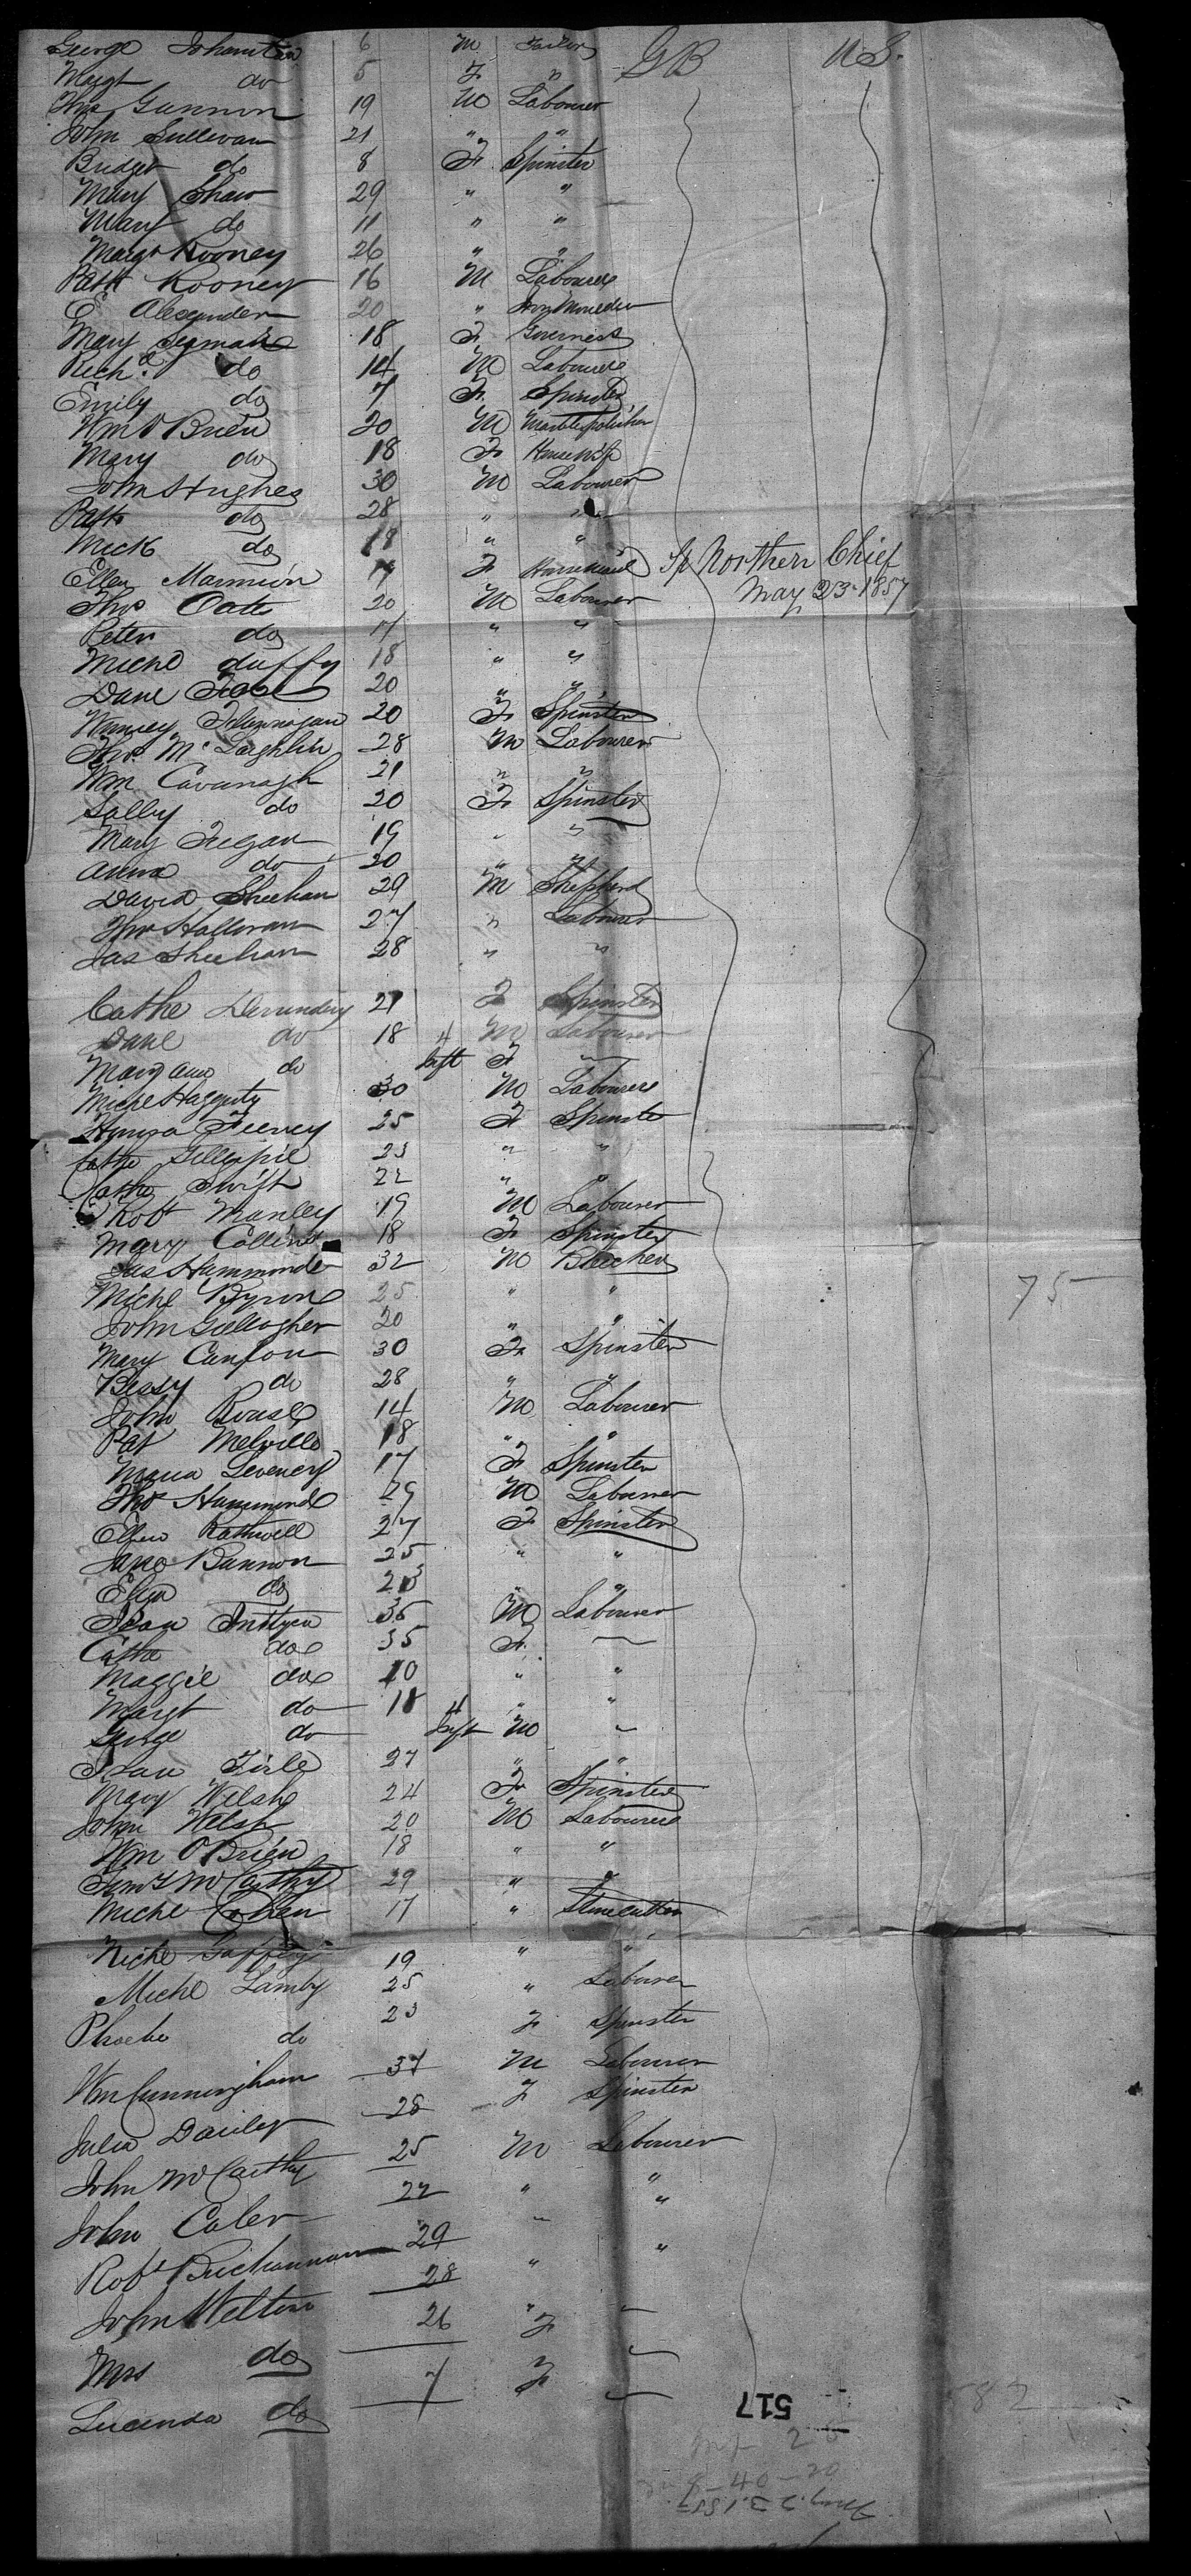 George Johnston 6 M Tailor GB U S.
Margt do 5 F "
Thos Gannon 19 M Labourer
John Sullivan 21 " "
Bridget do 8 F Spinster
Mary Shaw 29 " "
Mary do 11 " "
Margt Rooney 26 " "
Patk Rooney 16 M Labourer
E Alexander 20 " Iron Moulder
Mary 18 F Governess
Richd do 14 M Labourer
Emily do 7 F Spinster
Wm O Brien 20 M Marble polisher
Mary do 18 F Housewife
John Hughes 30 M Labourer
Patk do 28 " "
Mick do 18 " "
Ellen Mannion 19 F Housemaid Sp Northern Chief
Thos Oats 20 M Labourer May 23 1857
Peter do 17 " "
Michl duffy 18 " "
Danl 20 " "
Flannagan 20 F Spinster
Thos McLaghlin 28 M Labourer
Wm Cavanagh 21 " "
Sally do 20 F Spinster
Mary Fegan 19 " "
Anna do 20 " "
David Sheehan 29 M Shepherd
Thos Halloran 27 " Labourer
Jas Sheehan 28 " "
Cathe 21 F Spinster
Danl do 18 M Labourer
Mary Ann do 4 Inft F "
Michl Haggerty 30 M Labourer
Feeney 25 F Spinster
Cathe Gillespie 23 " "
Cathe Swift 22 " "
Robt Manley 19 M Labourer
Mary Collins 18 F Spinster
Jas Hammonde 32 M Butcher
Michl Byrone 25 " "
John Gallagher 20 " "
Mary Canfon 30 F Spinster
Bessy do 28 " "
John Rouse 14 M Labourer
Pat Melville 18 " "
Maria Leveney 17 F Spinster
Thos Hammond 29 M Labourer
Ellen Rathwell 27 F Spinster
Jane Bannon 25 " "
Eliza do 23 " "
M Labourer
Cathe do 35 F "
Maggie do 10 " "
Margt do 18 " "
George do 4 Inft M "
27 " "
Mary Welsh 24 F Spinster
John Welsh 20 M Labourer
Wm O'Brien 18 " "
McCarthy 29 " "
Michl Cohen 17 " Stonecutter
Michl Gaffney 19 " "
Michl Lamby 25 " Labourer
Phoebe do 23 F Spinster
Wm Cunningham 37 M Labourer
Julia Dailey 28 F Spinster
John McCarthy 25 M Labourer
John Caler 22 " "
Robt Buchannan 29 " "
John Welton 28 " "
Mrs do 26 F "
Lucinda do 7 F "
75
517
82
8-40-20
May 23. 1857